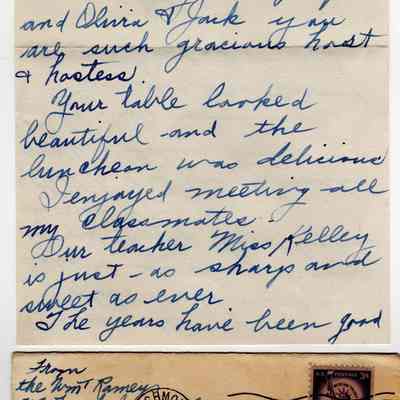 and Olivia & Jack you
are such gracious host
& hostess.
Your table looked
beautiful and the
luncheon was delicious
I enjoyed meeting all
my classmates.
Our teacher Miss Kelley
is just as sharp and
sweet as ever
The years have been good
From
the Wm Ramey
U.S. POSTAGE
3¢